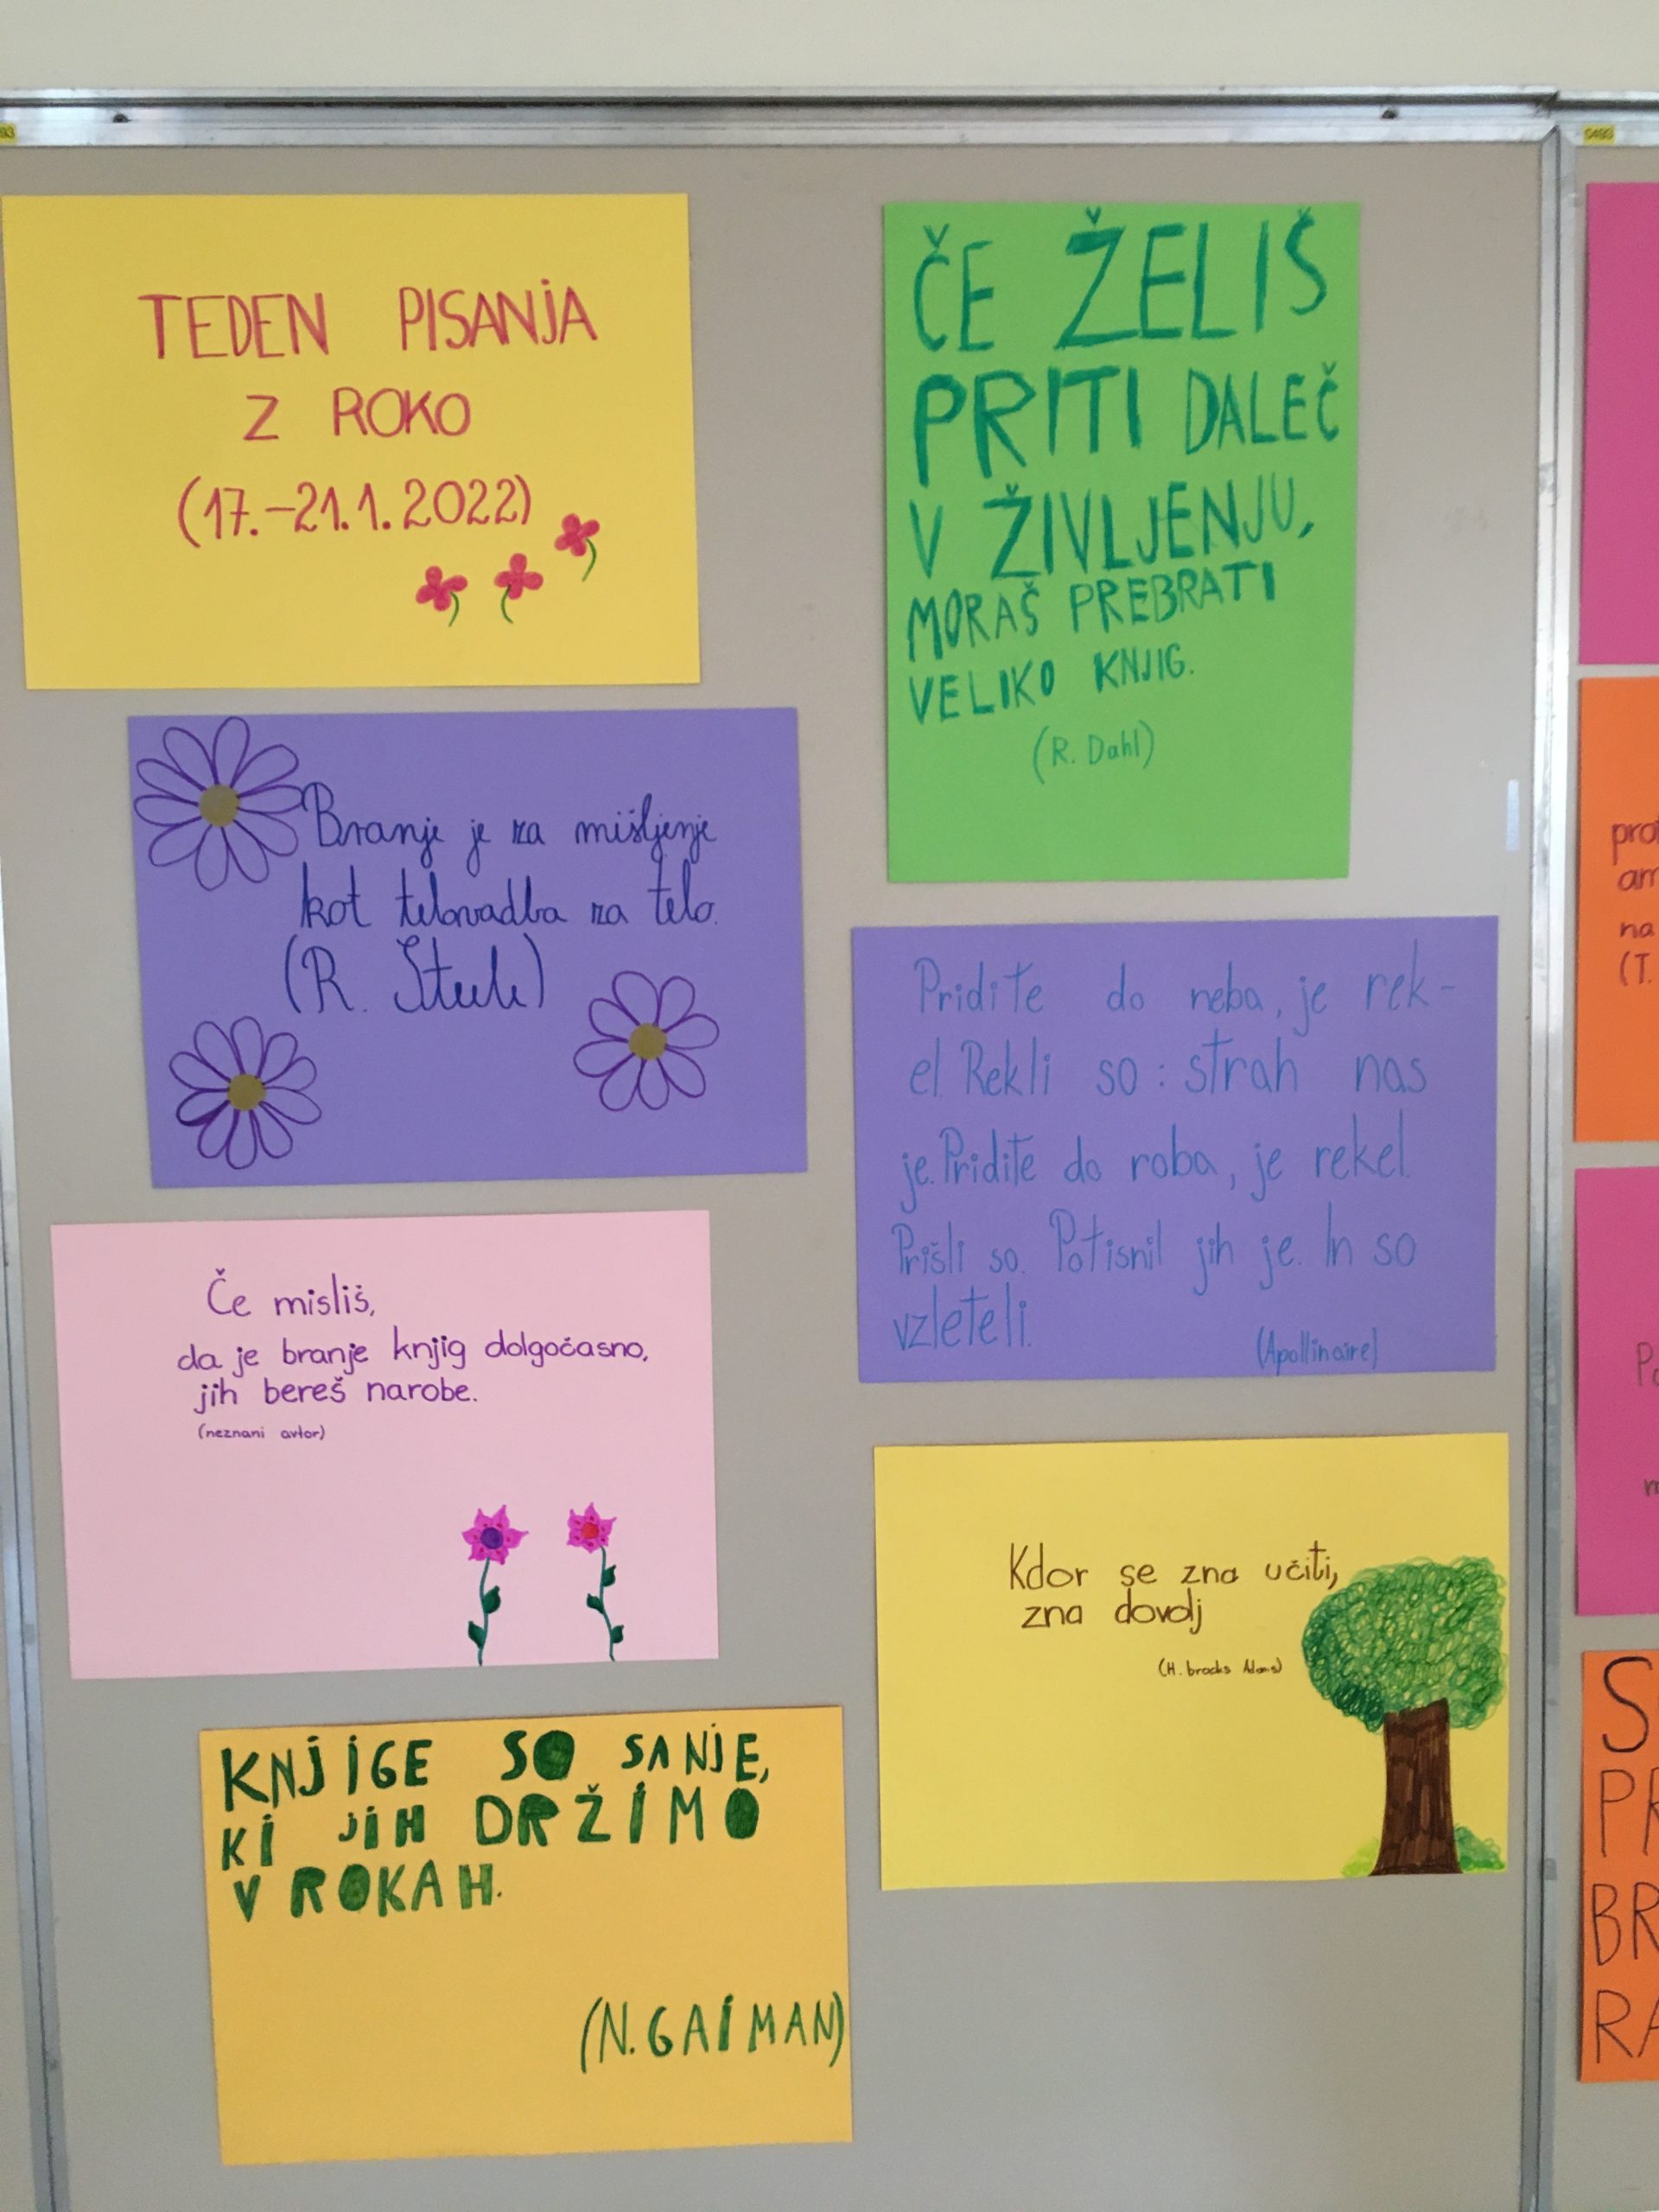 TEDEN PISANJA
Z ROKO
(17.–21.1.2022)
Branje je za mišljenje
kot telovadba za telo.
(R. Steele)
Če misliš,
da je branje knjig dolgočasno,
jih bereš narobe.
(neznani avtor)
KNJIGE SO SANJE,
KI JIH DRŽIMO
V ROKAH.
(N. GAIMAN)
ČE ŽELIŠ
PRITI DALEČ
V ŽIVLJENJU,
MORAŠ PREBRATI
VELIKO KNJIG.
(R. Dahl)
Pridite do neba, je rek-
el. Rekli so: strah nas
je. Pridite do roba, je rekel.
Prišli so. Potisnil jih je. In so
vzleteli.
(Apollinaire)
Kdor se zna učiti,
zna dovolj
(H. brooks Adams)
na
(T.
S
PR
BR
RA